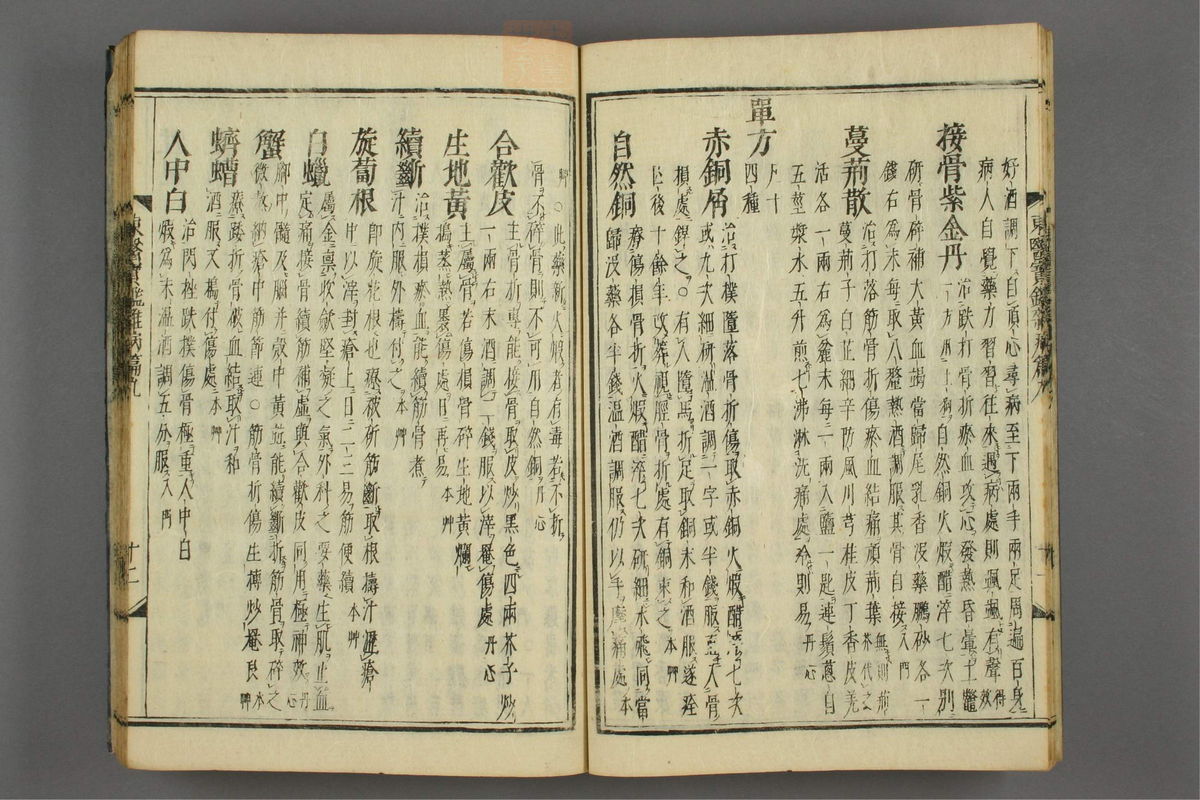 好酒調下自頂心尋病至下兩手兩足周遍百身
病人自覺藥力習習往來遇病處則颯颯有聲得效
接骨紫金丹
治跌打骨折瘀血攻心發熱昏暈土鱉
一方用土狗自然銅火煅醋淬七次別
研骨碎補大黃血竭當歸尾乳香沒藥鵬砂各一
錢右爲末每取八釐熱酒調服其骨自接入門
蔓荊散
治打落筋骨折傷瘀血結痛頑荊葉無則荊芥代之
蔓荊子白芷細辛防風川芎桂皮丁香皮羌
活各一兩右爲麄末每二兩入鹽一匙連鬚葱白
五莖漿水五升煎七沸淋洗痛處冷則易丹心
單方
凡十四種
赤銅屑
治打撲墮落骨折傷取赤銅火煅醋淬七次
或九次細研溫酒調一字或半錢服直入骨
損處銲之○有人墮馬折足取銅末和酒服遂痊
亡後十餘年改葬視脛骨折處有銅束之本草
自然銅
療傷損骨折火煅醋淬七次研細水飛同當
歸沒藥各半錢溫酒調服仍以手摩痛處本
草○此藥新火煅者有毒若不折
骨不碎骨則不可用自然銅丹心
合歡皮
主骨折專能接骨取皮炒黑色四兩芥子炒
一兩右末酒調二錢服以滓罨傷處丹心
生地黃
主屬骨若傷損骨碎生地黃爛
搗蒸熱裹傷處日再易本草
續斷
治撲損瘀血能續筋骨煮
汁內服外擣付之本草
旋葍根
卽旋花根也療被斫筋斷取根擣汁瀝瘡
中以滓封瘡上日二三易筋便續本草
白蠟
屬金稟收斂堅凝之氣外科之要藥生肌止血
定痛接骨續筋補虛與合歡皮同用極神效丹心
蟹
脚中髓及腦并殼中黃並能續斷折筋骨取碎之
微熬納瘡中筋節連○筋骨折傷生搏炒罨良本草
蠐螬
療踒折骨破血結取汁和
酒服又搗付傷處本草
人中白
治閃挫跌撲傷骨極重人中白
煅爲末溫酒調五分服入門
東醫寶鑑雜病篇九
十二